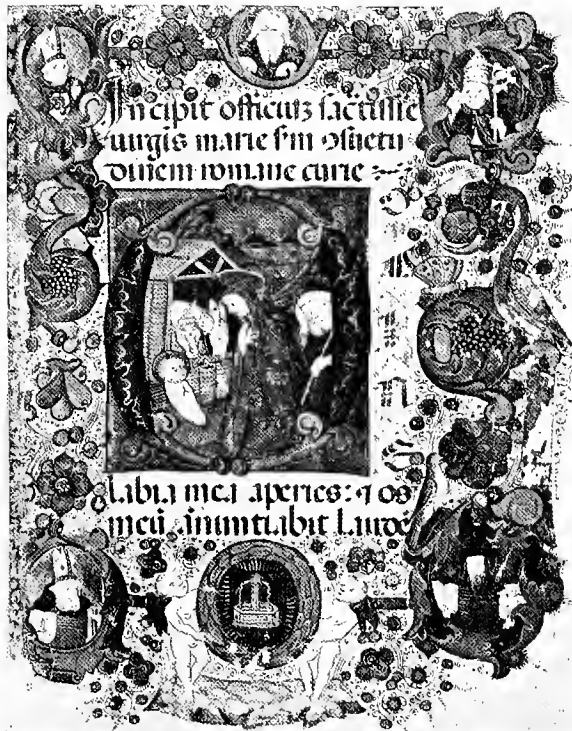 Incipit officiuz sāctissie
uirgis marie sm ɔsuetu
dinem romane curie
labia mea aperies: ⁊ os
meū anuntiabit laudē